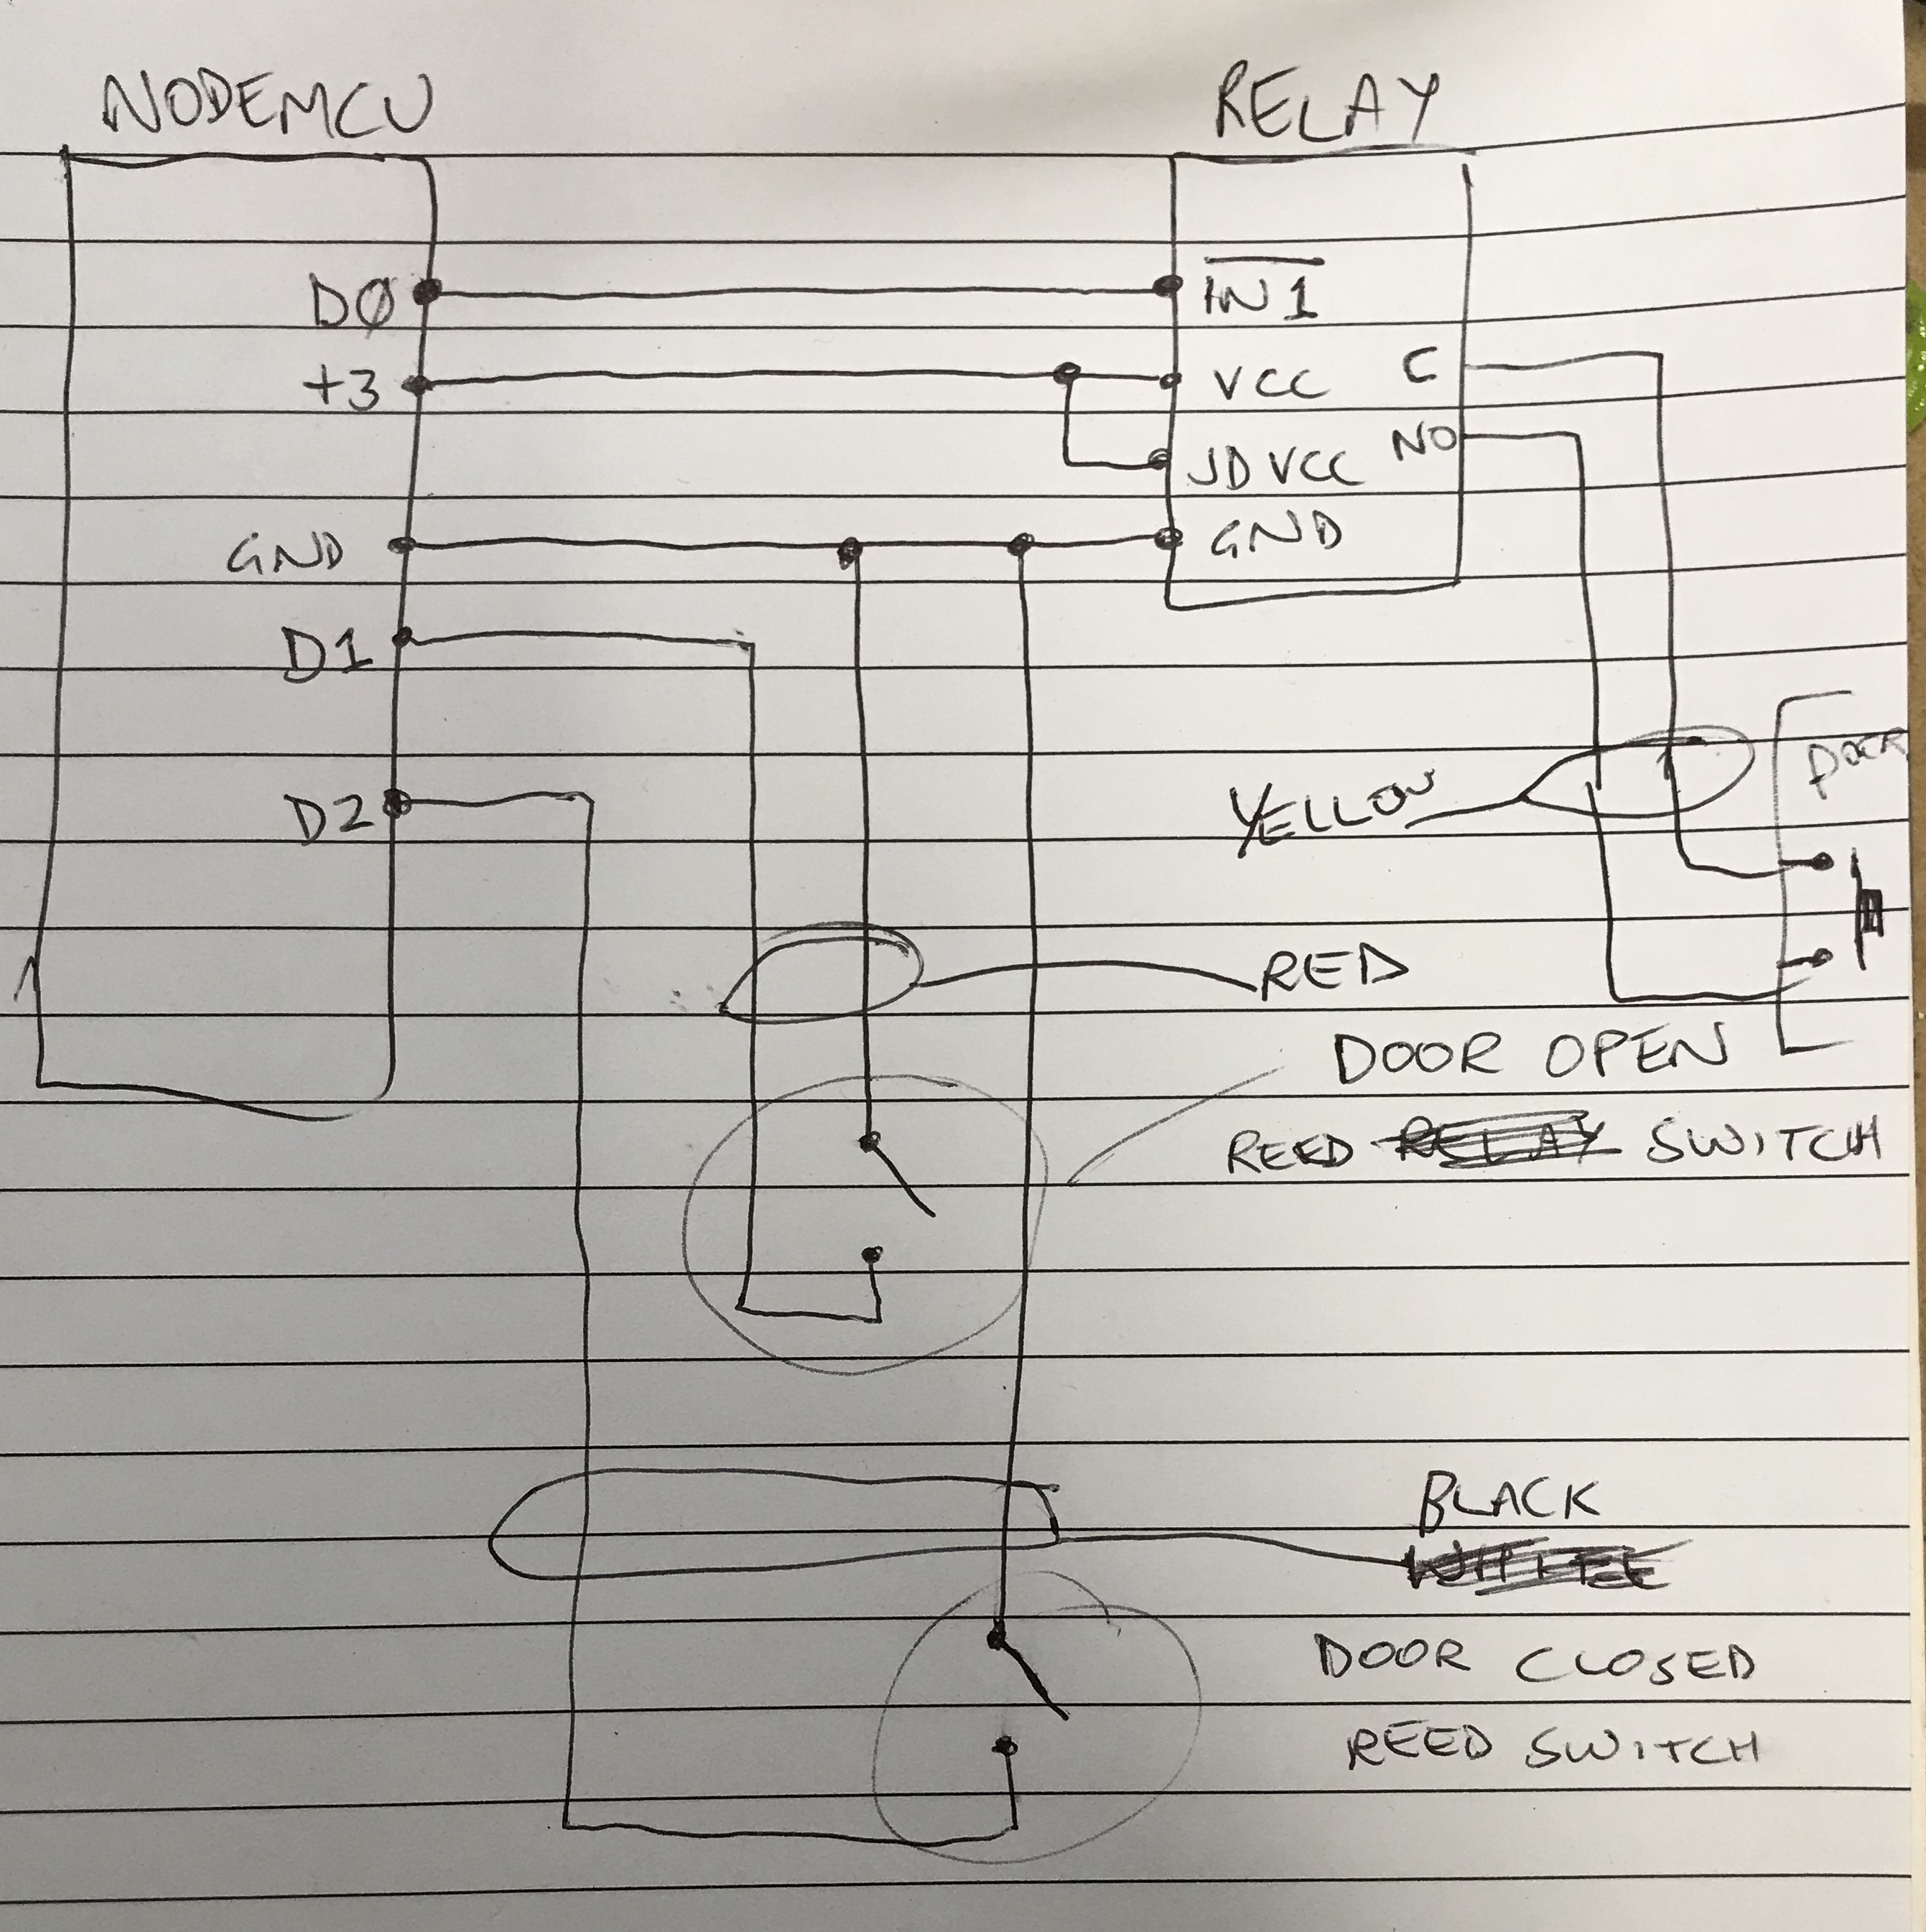 NODEMCU
RELAY
DØ
IN1
+3
VCC
C
JDVCC
NO
GND
GND
D1
D2
YELLOW
DOOR
RED
DOOR OPEN
REED RELAY SWITCH
BLACK
WHITE
DOOR CLOSED
REED SWITCH